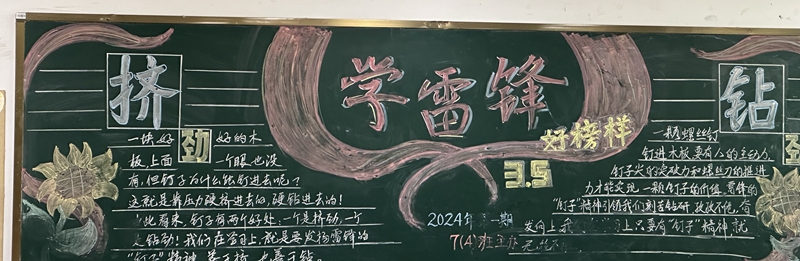 挤劲
一块好 好的木
板上面 一个眼也没
有,但钉子为什么能钉进去呢?
这就是靠压力硬挤进去的,硬钻进去的!
此看来,钉子有两个好处,一个是挤劲,一个
是钻劲!我们在学习上,就是要发扬雷锋的
"钉子"精神,善于挤,也善于钻。
学雷锋
好榜样
3.5
2024年 一期
7(4)班主办
钻
一颗螺丝钉
钉进木板要有人的主动力
钉子尖的突破力和螺丝刀的推进
力才能实现一颗钉子的价值,雷锋的
"钉子"精神引领我们刻苦钻研,孜孜不倦,奋
发向上,我 学习上只要有"钉子"精神,就